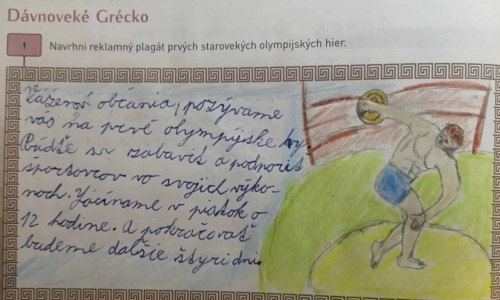 Dávnoveké Grécko
1 Navrhni reklamný plagát prvých starovekých olympijských hier.
Vážený občania, pozývame
vás na prvé olympíjske hry.
Príďte sa zabaviť a podporiť
športovcov vo svojich výko-
noch. Začíname v piatok o
12 hodine. A pokračovať
budeme dalšie štyri dni.